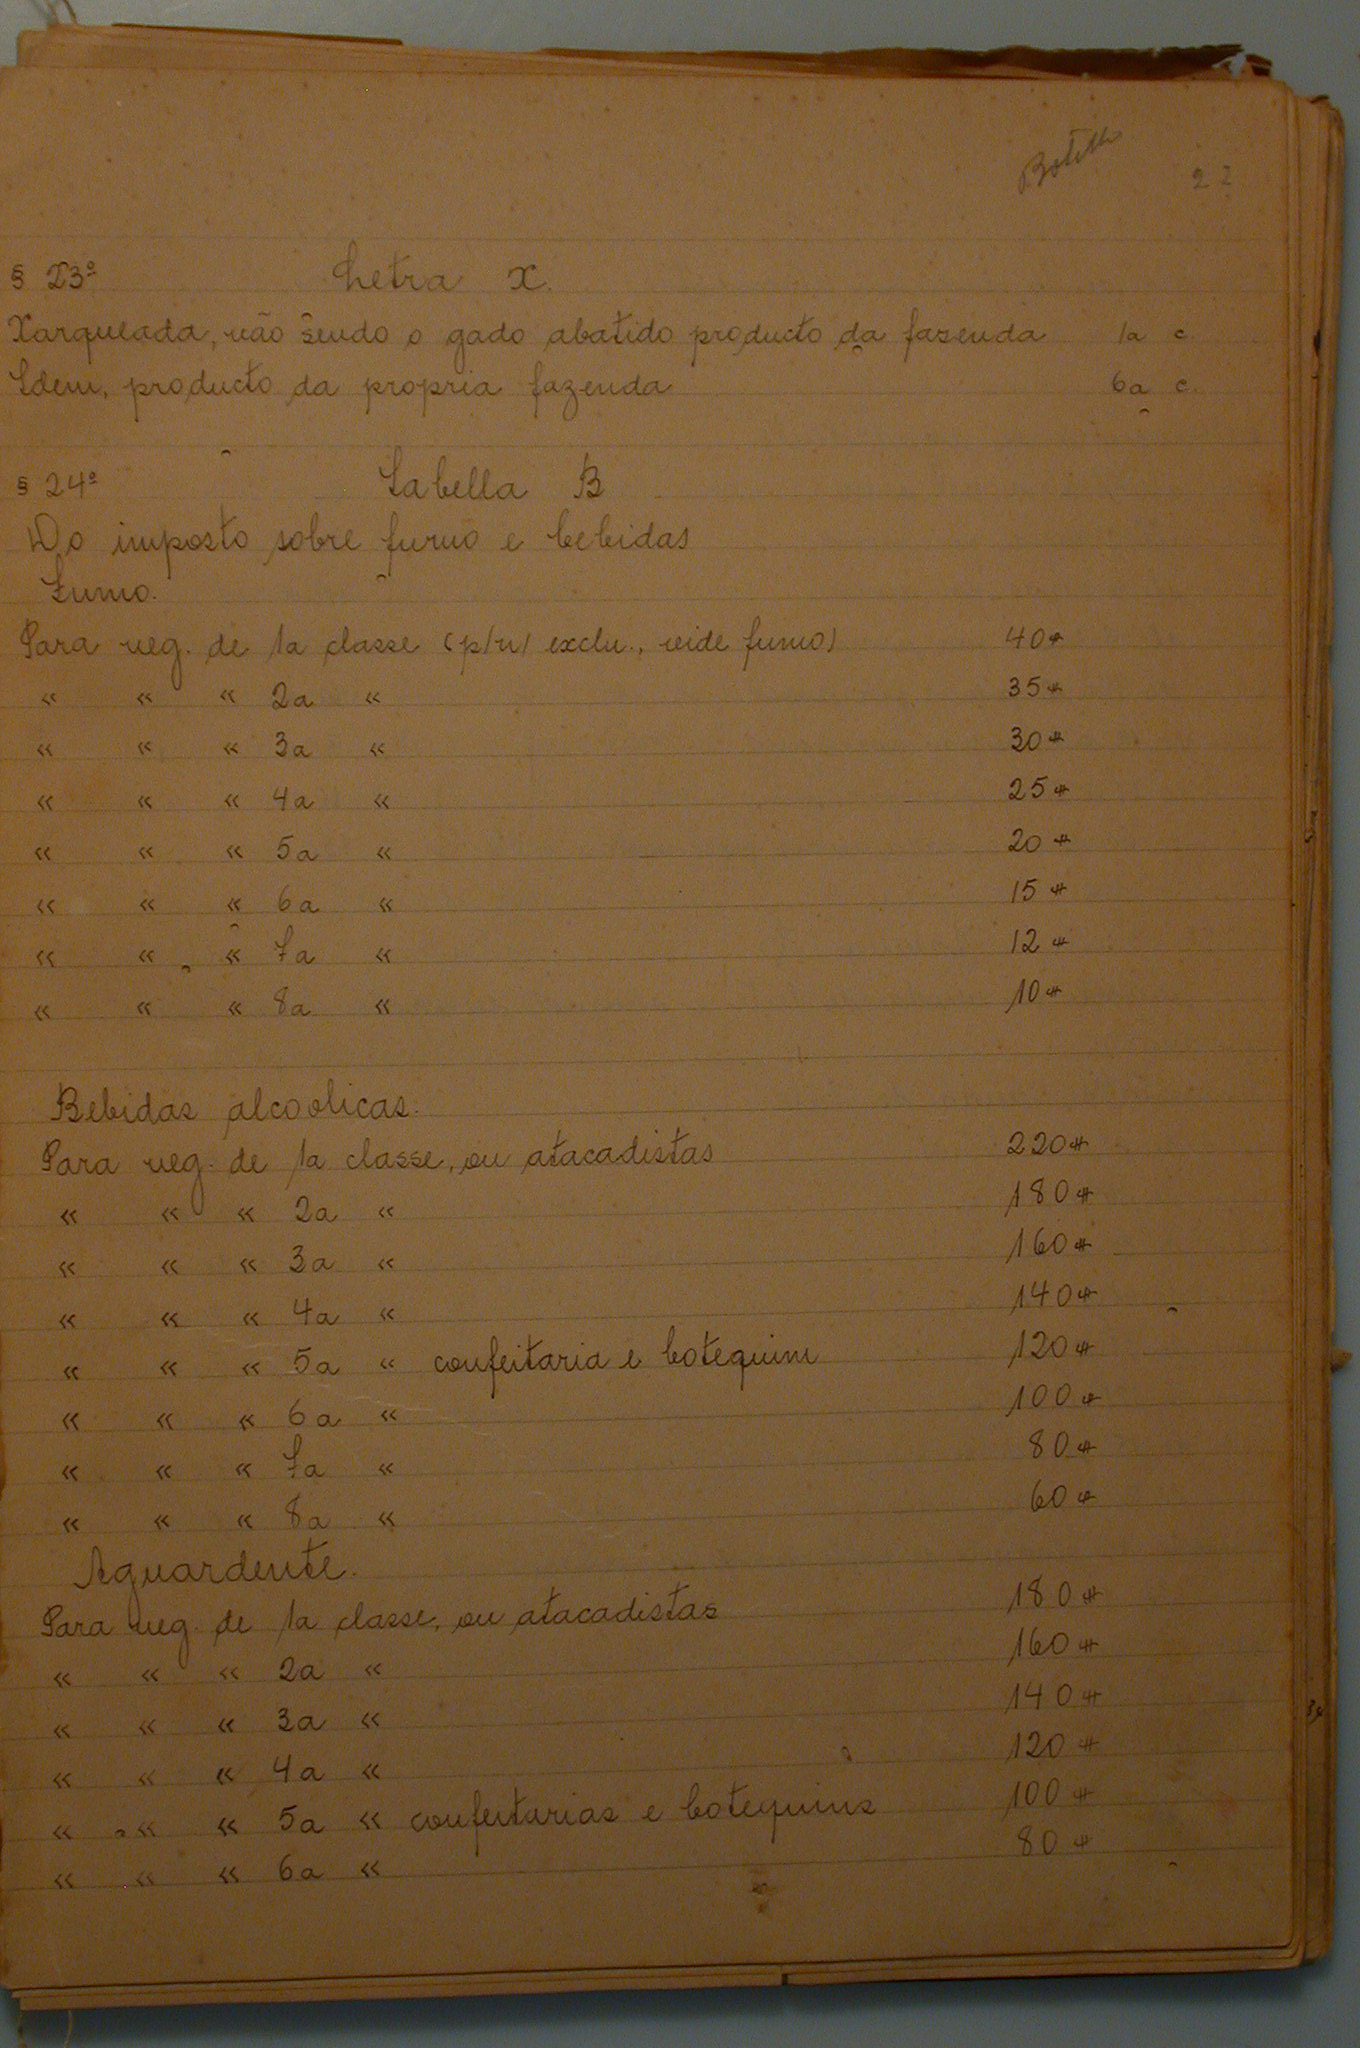 22
§ 23º Letra X.
Xarqueada, não sendo o gado abatido producto da fazenda 1a c.
Idem, producto da propria fazenda 6a c.
§ 24º Tabella B
Do imposto sobre fumo e bebidas
Fumo.
Para neg. de 1a classe (p/n/ exclu., vide fumo) 40$
« « « 2a « 35$
« « « 3a « 30$
« « « 4a « 25$
« « « 5a « 20$
« « « 6a « 15$
« « « 7a « 12$
« « « 8a « 10$
Bebidas alcoolicas.
Para neg. de 1a classe, ou atacadistas 220$
« « « 2a « 180$
« « « 3a « 160$
« « « 4a « 140$
« « « 5a « confeitaria e botequim 120$
« « « 6a « 100$
« « « 7a « 80$
« « « 8a « 60$
Aguardente.
Para neg. de 1a classe, ou atacadistas 180$
« « « 2a « 160$
« « « 3a « 140$
« « « 4a « 120$
« « « 5a « confeitarias e botequins 100$
« « « 6a « 80$